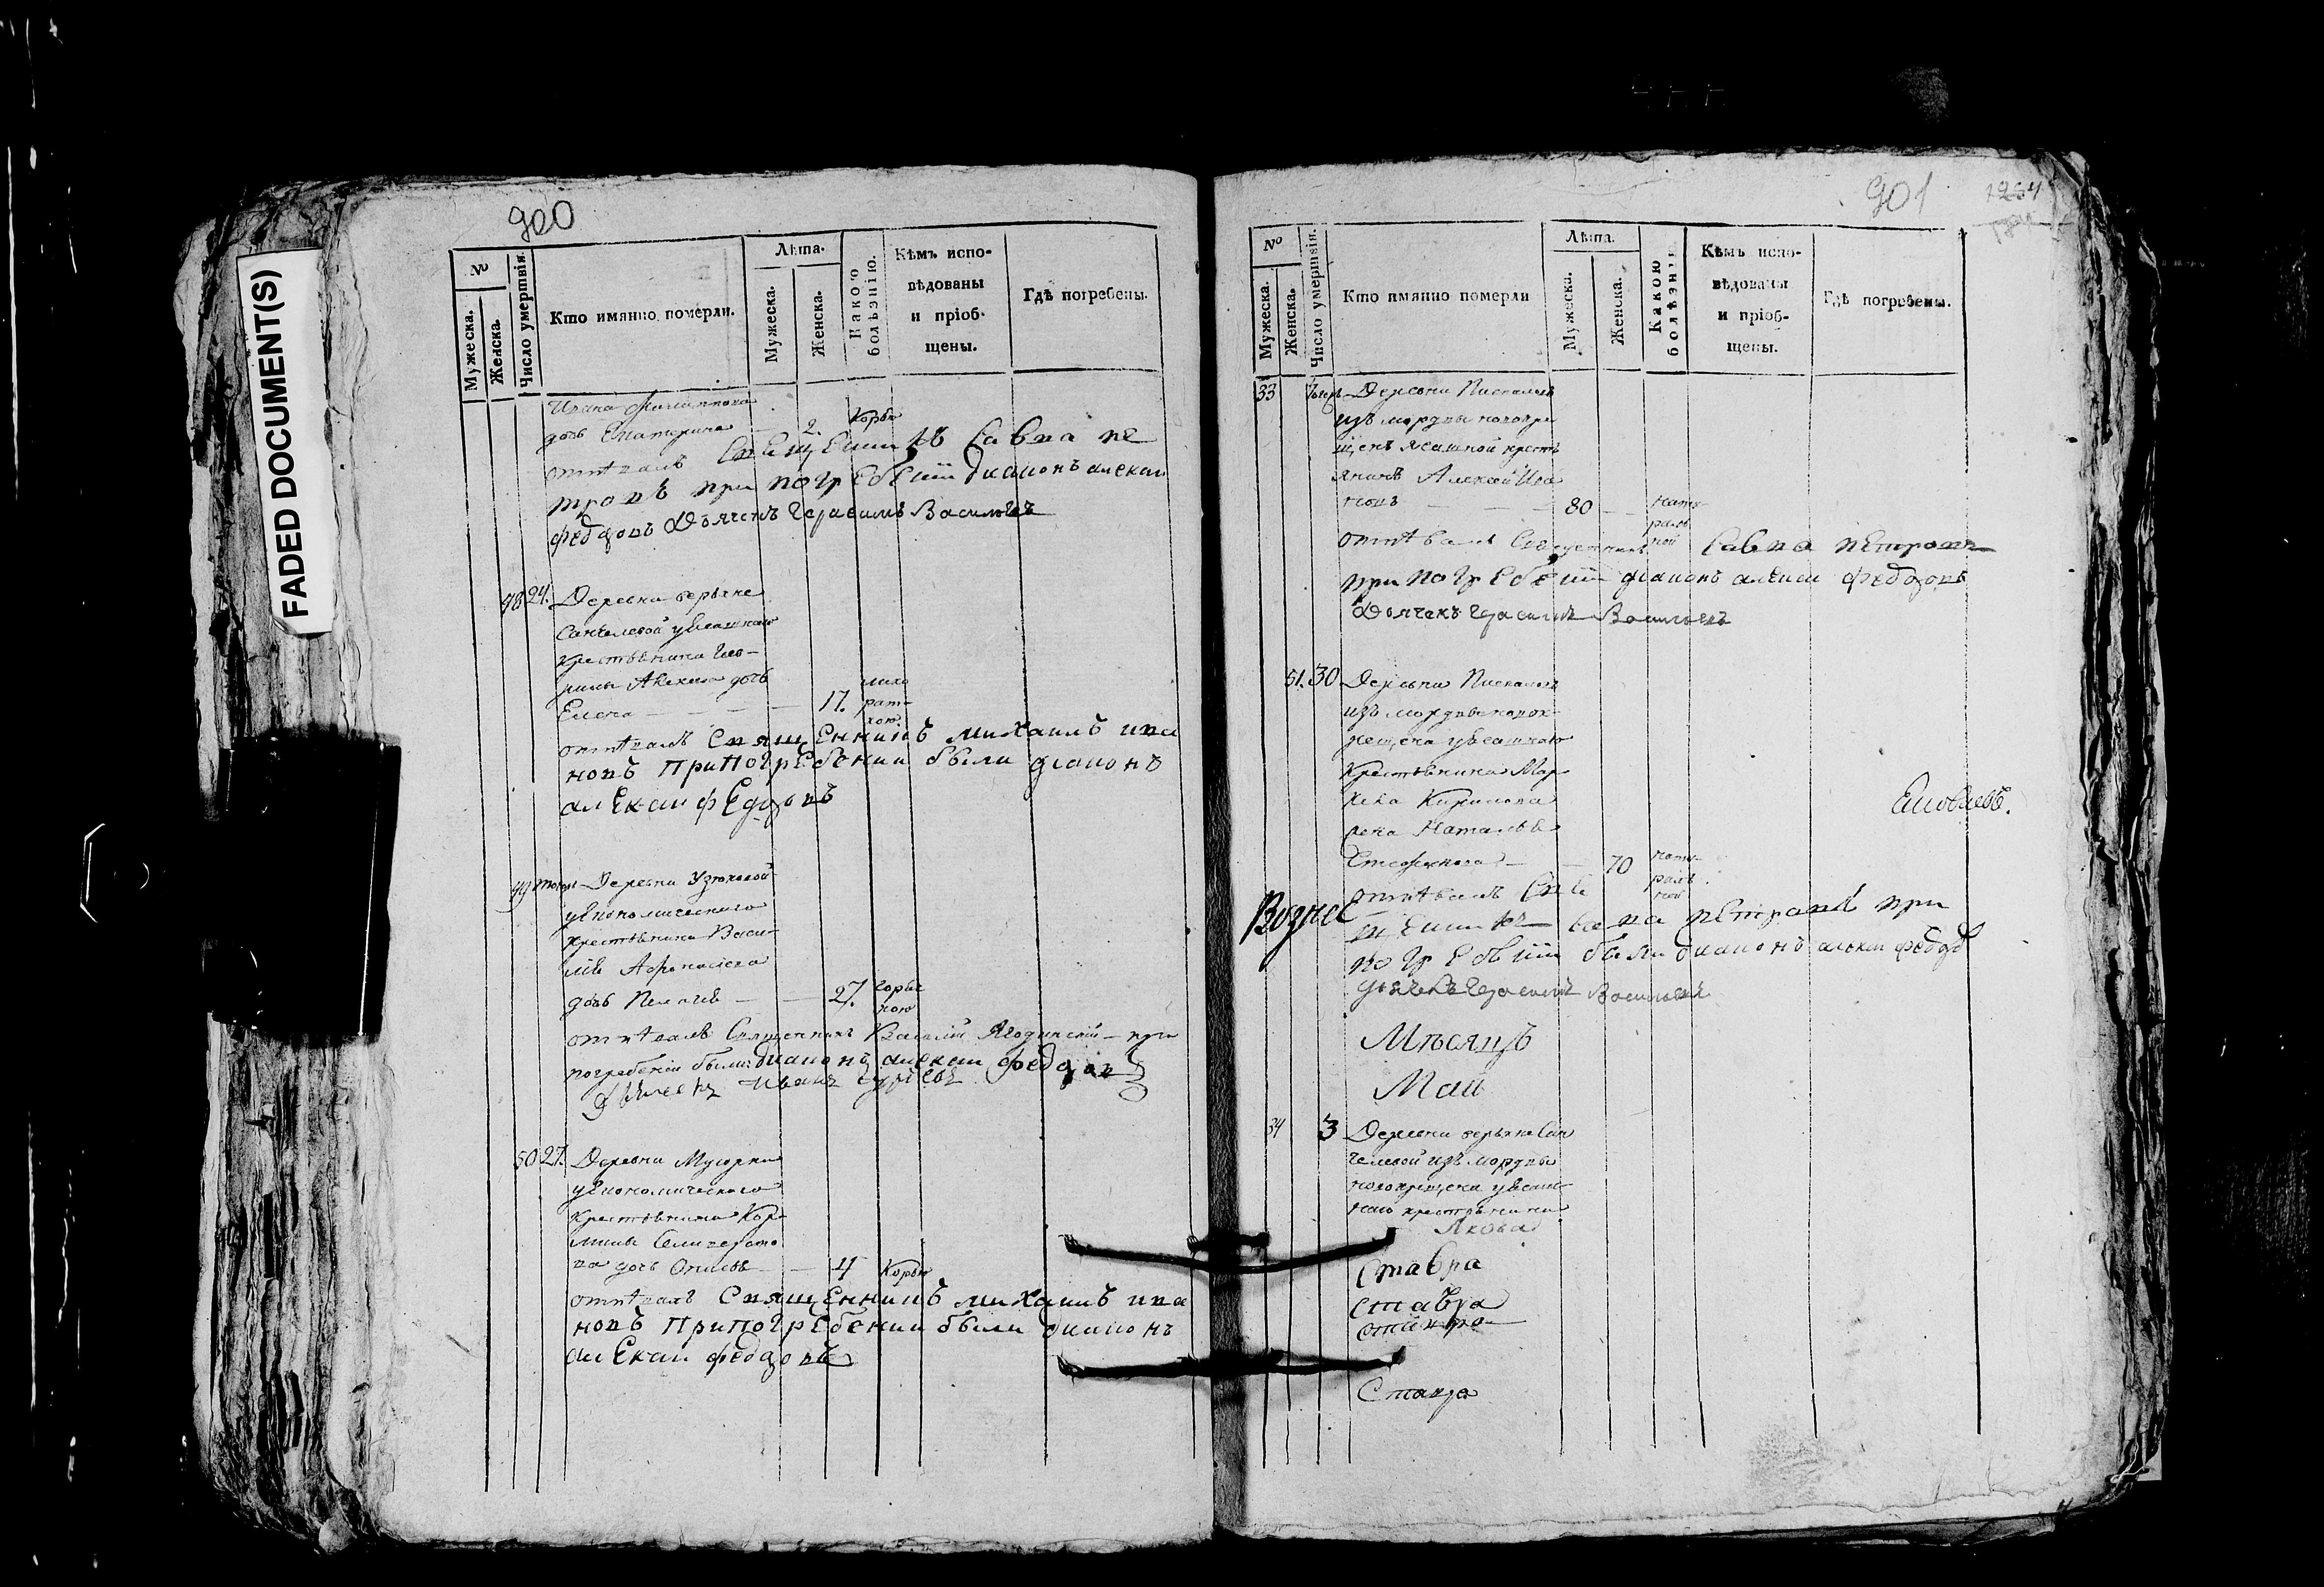 FADED DOCUMENT(S)
900
№
Мужеска.
Женска.
Число умертвія.
Кто имянно померли.
Лѣта.
Мужеска.
Женска.
Какою болѣзнію.
Кѣмъ испо-
вѣдованы
и пріоб-
щены.
Гдѣ погребены.
дочь Екатерина — 2. Корью
отпѣвалъ Савва пе
тровъ при погребеніи диаконъ алекси
федоровъ Дьячекъ Герасимъ Васильевъ
48 24. Деревни верхне
Санчелевой
крестьянина
дочь
Елена — — — 17. лихо
рат
кою
отпѣвалъ Священникъ михаилъ ива
новъ При Погребении были диаконъ
алексии федоровъ
49 Деревни Узюковой
економическаго
крестьянина Васи
лья Афонасьева
дочь Пелагея — — 27. горяч
кою
отпѣвалъ Священникъ Василій Ягодинскій при
погребеніи были диаконъ алексии федоровъ
Дьячекъ Иванъ Гурьевъ
50 27. Деревни Мусорки
економическаго
крестьянина Кор
нилы Селиверсто
ва дочь — 4 Корью
отпѣвалъ Священникъ михаилъ ива
новъ При Погребении были диаконъ
алексии федоровъ
901
1234
№
Мужеска.
Женска.
Число умертвія.
Кто имянно померли
Лѣта.
Мужеска.
Женска.
Какою болѣзнію.
Кѣмъ испо-
вѣдованы
и пріоб-
щены.
Гдѣ погребены.
33 Деревни Пискалы
изъ мордвы новокре
щенъ ясашной кресть
янинъ Алексей Ива
новъ — — — 80 — нату
раль
ной
отпѣвалъ Священникъ Савва петровъ
при погребеніи диаконъ алекси федоровъ
Дьячекъ Герасимъ Васильевъ
51. 30 Деревни Пискалы
изъ мордвы новок
рещена
крестьянина Мар
кела Кирилова
жена Наталья
— — 70 нату
раль
ной
отпѣвалъ Свя
Вознес
щенникъ савва петровъ при
погребеніи были диаконъ алекси федор
дьячекъ Герасимъ Васильевъ
Яковлевъ.
Мѣсяцъ
Маій
34 3 Деревни верхне Сан
челевой изъ мордвы
новокрещена ясаш
наго крестьянина
Якова
Ставра
ставра
Ставра